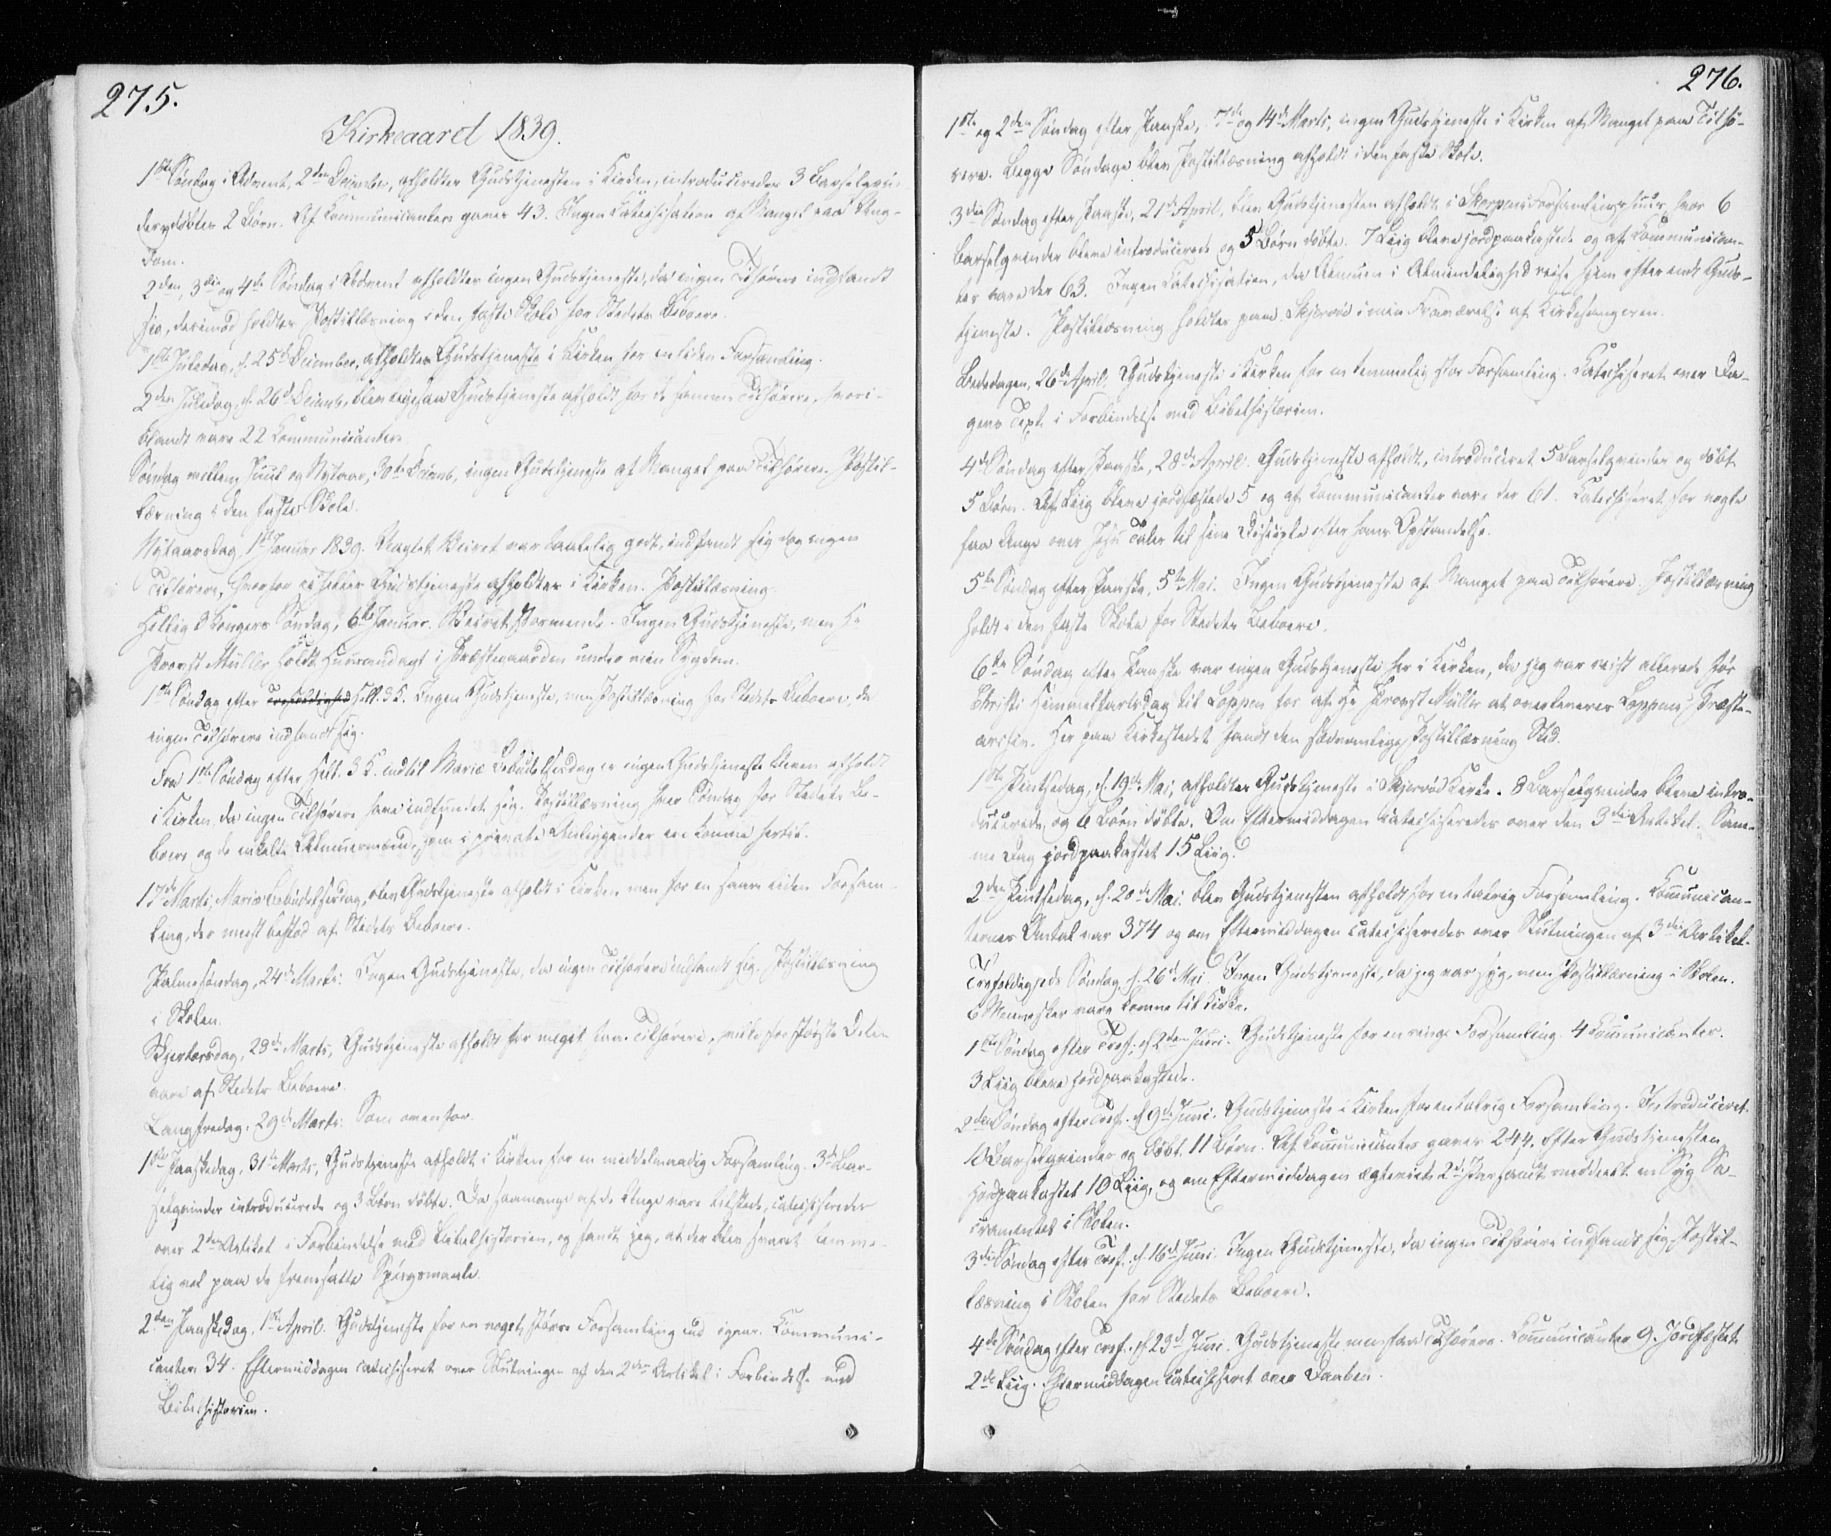 275.
Kirkeaaret 1839.
1ste Søndag i Advent, 2den December, afholdtes Gudstjenesten i Kirken, introduceredes 3 Barselqvin-
der og døbtes 2 Børn. Af Communicanter gaves 43. Ingen Catechisation af Mangel paa Ung-
dom.
2den, 3die og 4de Søndag i Advent afholdtes ingen Gudstjeneste, da ingen Tilhørere indfandt
sig, derimod holdtes Postillæsning i den faste Skole for Stedets Beboere.
1ste Juledag, d. 25de December, afholdtes Gudstjeneste i Kirken for en liden Forsamling.
2den Juledag, d. 26de Decemb., blev ligesaa Gudstjeneste afholdt for de samme Tilhørere, hvori-
blandt vare 22 Communicantere.
Søndag mellem Juul og Nytaar, 30te Decemb., ingen Gudstjeneste af Mangel paa Tilhørere. Postil-
læsning i den faste Skole.
Nytaarsdag, 1ste Januar 1839. Uagtet Veiret var taalelig godt, indfandt sig dog ingen
Tilhørere, hvorfor ei heller Gudstjeneste afholdtes i Kirken. Postillæsning.
Hellig 3 Kongers Søndag, 6te Januar. Veiret stormende. Ingen Gudstjeneste, men Hr
Provst Müller holdt Huusandagt i Præstegaarden under min Sygdom.
1ste Søndag efter Hell. 3 K. Ingen Gudstjeneste, men Postillæsning for Stedets Beboere, da
ingen Tilhørere indfandt sig.
Fra 1ste Søndag efter Hell. 3 K. indtil Mariæ Bebudelsesdag er ingen Gudstjeneste bleven afholdt
i Kirken, da ingen Tilhørere have indfundet sig. Postillæsning hver Søndag for Stedets Be-
boere og de enkelte Almuesmænd, som i private Anliggender ere komne hertil.
17de Marts, Mariæ Bebudelsesdag, blev Gudstjeneste afholdt i Kirken, men for en saare liden Forsam-
ling, der meest bestod af Stedets Beboere.
Palmesøndag, 24de Marts. Ingen Gudstjeneste, da ingen Tilhørere indfandt sig. Postillæsning
i Skolen.
Skjertorsdag, 28de Marts, Gudstjeneste afholdt for meget faa Tilhørere, hvilke for største Delen
vare af Stedets Beboere.
Langfredag, 29de Marts. Som ovenfor.
1ste Paaskedag, 31te Marts, Gudstjeneste afholdt i Kirken for en middelmaadig Forsamling. 3 Bar-
selqvinder introducerede og 3 Børn døbte. Da saamange af de Unge vare tilstede, catechiseredes
over 2den Artikel i Forbindelse med Bibelhistorien, og fandt jeg, at der blev svaret temme-
lig vel paa de fremsatte Spørgsmaale.
2den Paaskedag, 1ste April. Gudstjeneste for en noget større Forsamling end igaar. Communi-
canter 34. Eftermiddagen catechiseret over Slutningen af den 2den Artikel i Forbindelse med
Bibelhistorien.
276.
1ste og 2den Søndag efter Paaske, 7de og 14de Marts, ingen Gudstjeneste i Kirken af Mangel paa Tilhø-
rere. Begge Søndage blev Postillæsning afholdt i den faste Skole.
3die Søndag efter Paaske, 21de April, blev Gudstjenesten afholdt i Skorpens Forsamlingshuus, hvor 6
Barselqvinder bleve introducerede og 5 Børn døbte. 7 Liig bleve jordpaakastede og af Communican-
ter vare der 63. Ingen Catechisation, da Almuen i Almindelighed reise hjem efter endt Guds-
tjeneste. Postillæsning holdtes paa Skjervø i min Fraværelse af Kirkesangeren.
Bededagen, 26de April. Gudstjeneste i Kirken for en temmelig stor Forsamling. Catechiseret over Da-
gens Text i Forbindelse med Bibelhistorien.
4de Søndag efter Paaske, 28de April. Gudstjeneste afholdt, introduceret 5 Barselqvinder og døbt
5 Børn. Af Liig bleve jordfæstede 5 og af Communicanter vare der 61. Catechiseret for nogle
faa Unge over Jesu Taler til sine Disciple efter hans Opstandelse.
5te Søndag efter Paaske, 5te Mai. Ingen Gudstjeneste af Mangel paa Tilhørere. Postillæsning
holdt i den faste Skole for Stedets Beboere.
6te Søndag efter Paaske var ingen Gudstjeneste her i Kirken, da jeg var reist allerede før
Christi Himmelfartsdag til Loppen for af Hr Provst Müller at overleveres Loppens Præste-
archiv. Her paa Kirkestedet fandt den sædvanlige Postillæsning Sted.
1ste Pintsedag, d. 19de Mai, afholdtes Gudstjeneste i Skjervø Kirke. 8 Barselqvinder bleve intro-
ducerede, og 6 Børn døbte. Om Eftermiddagen catechiseredes over den 3die Artikel. Sam-
me Dag jordpaakastet 15 Liig.
2den Pintsedag, d. 20de Mai blev Gudstjenesten afholdt for en talrig Forsamling. Communican-
ternes Antal var 374 og om Eftermiddagen catechiseredes over Slutningen af 3die Artikel.
Trefoldigheds Søndag, d. 26de Mai. Ingen Gudstjeneste, da jeg var syg, men Postillæsning i Skolen.
6 Mennesker vare komne til Kirke.
1ste Søndag efter Tref. d. 2den Juni. Gudstjeneste for en ringe Forsamling. 4 Communicanter.
3 Liig bleve jordpaakastede.
2den Søndag efter Tref. d. 9de Juni. Gudstjeneste i Kirken for en talrig Forsamling. Introduceret
10 Barselqvinder og døbt 11 Børn. Af Communicanter gaves 244. Efter Gudstjenesten
jordpaakastet 10 Liig, og om Eftermiddagen ægteviet 2de Par samt meddeelt en Syg Sa-
cramentet i Skolen.
3die Søndag efter Tref. d. 16de Juni. Ingen Gudstjeneste, da ingen Tilhørere indfandt sig. Postil-
læsning i Skolen for Stedets Beboere.
4de Søndag efter Tref. d. 23de Juni. Gudstjeneste men faa Tilhørere. Communicanter 9. Jordfæstet
2de Liig. Eftermiddagen Catechiseret over Daaben.